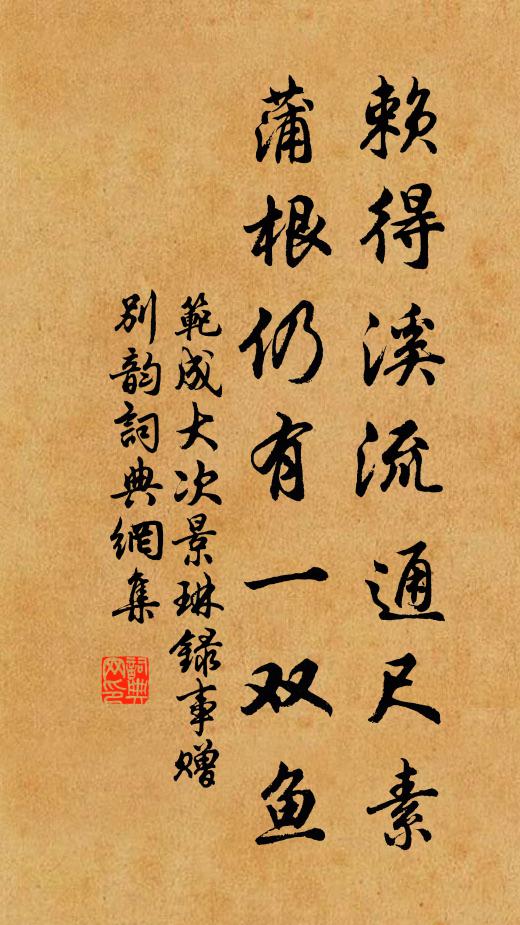 赖得溪流通尺素
蒲根仍有一双鱼
範成大次景琳録事赠
别韵詞典網集
詞典
网印